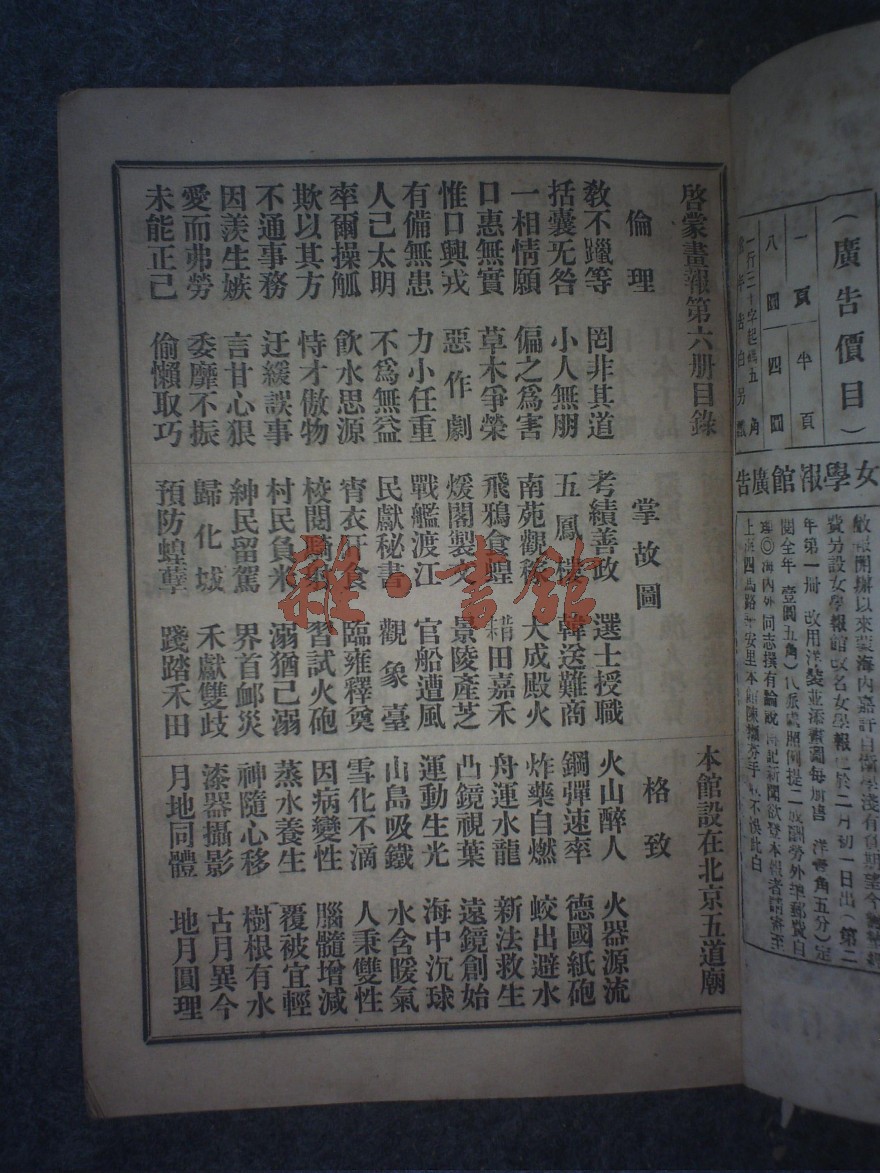 啓蒙畫報第六册目錄
本館設在北京五道廟
倫理
教不躐等
罔非其道
括囊无咎
小人無朋
一相情願
偏之爲害
口惠無實
草木爭榮
惟口興戎
惡作劇
有備無患
力小任重
人己太明
不爲無益
率爾操觚
飲水思源
欺以其方
恃才傲物
不通事務
迂緩誤事
因羨生嫉
言甘心狠
愛而弗勞
委靡不振
未能正己
偷懶取巧
掌故圖
考績善政
選士授職
五鳳樓
韓送難商
南苑觀稼
大成殿火
飛鴉食蝗
耤田嘉禾
煖閣製文
景陵產芝
戰艦渡江
官船遭風
民獻秘書
觀象臺
宵衣旰食
臨雍釋奠
校閱騎射
習試火砲
村民負米
溺猶己溺
紳民留駕
界首卹災
歸化城
禾獻雙歧
預防蝗孽
踐踏禾田
格致
火山醉人
火器源流
鋼彈速率
德國紙砲
炸藥自燃
蛟出避水
舟運水龍
新法救生
凸鏡視葉
遠鏡創始
運動生光
海中沉球
山島吸鐵
水含暖氣
雪化不滴
人秉雙性
因病變性
腦髓增減
蒸水養生
覆被宜輕
神隨心移
樹根有水
漆器攝影
古月異今
月地同體
地月圓理
（廣告價目）
一頁
半頁
八圓
四圓
女學報館廣告
雜·書館